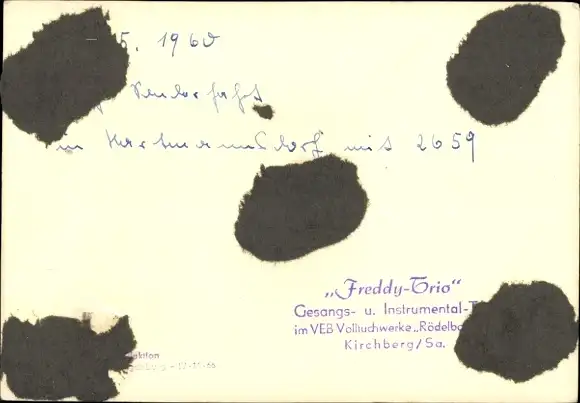 5. 1960
Sonderfahrt
in Hartmannsdorf mit 2659
„Freddy-Trio“
Gesangs- u. Instrumental-T
im VEB Volltuchwerke „Rödelba
Kirchberg/Sa.